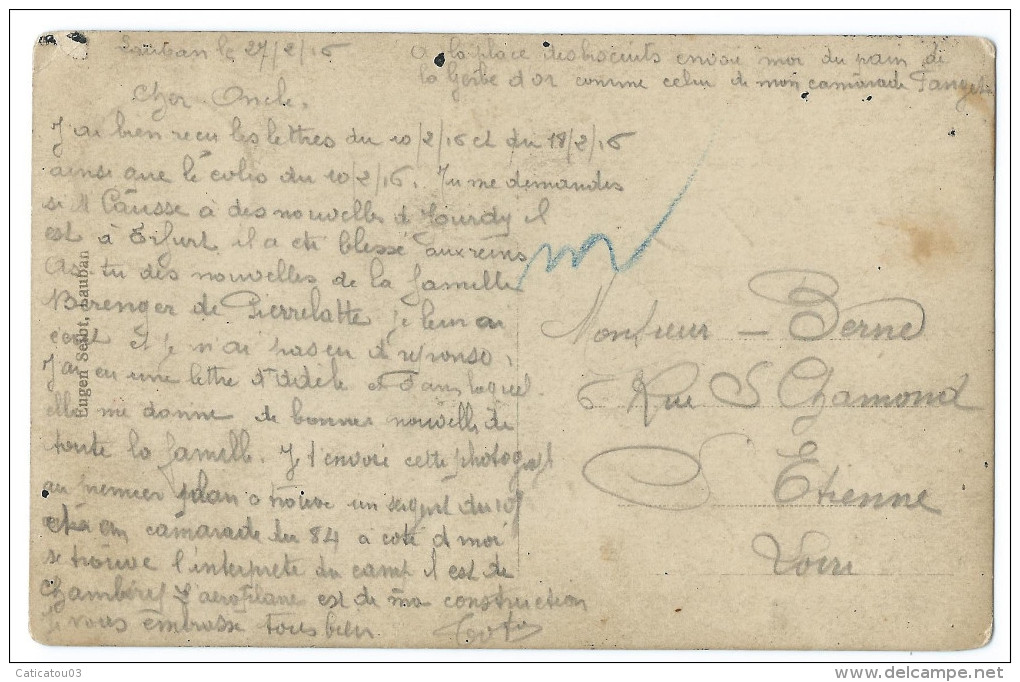 Lauban le 27/2/16
A la place des biscuits envoie moi du pain de
la Gerbe d'or comme celui de mon camarade
Cher Oncle,
J'ai bien recu les lettres du 10/2/16 et du 18/2/16
ainsi que le colis du 10/2/16. Tu me demandes
si M Causse a des nouvelles d Tourdy il
est à Erfurt il a ete blesse aux reins
As tu des nouvelles de la famille
Berenger de Pierrelatte je leur ai
ecrit et je n'ai pas eu d reponse.
J'ai eu une lettre d' et dans laquel
elle me donne de bonnes nouvelles de
toute la famille. Je t'envoie cette photograph
au premier plan se trouve un sergent du
et un camarade du 84 a coté d moi
se trouve l'interprete du camp il est de
Chambéry L'aeroplane est de ma construction
Je vous embrasse tous bien
Eugen Seibt, Lauban
Monsieur - Berne
6 Rue S Chamond
S Etienne
Loire
Caticatou03
www.delcampe.net